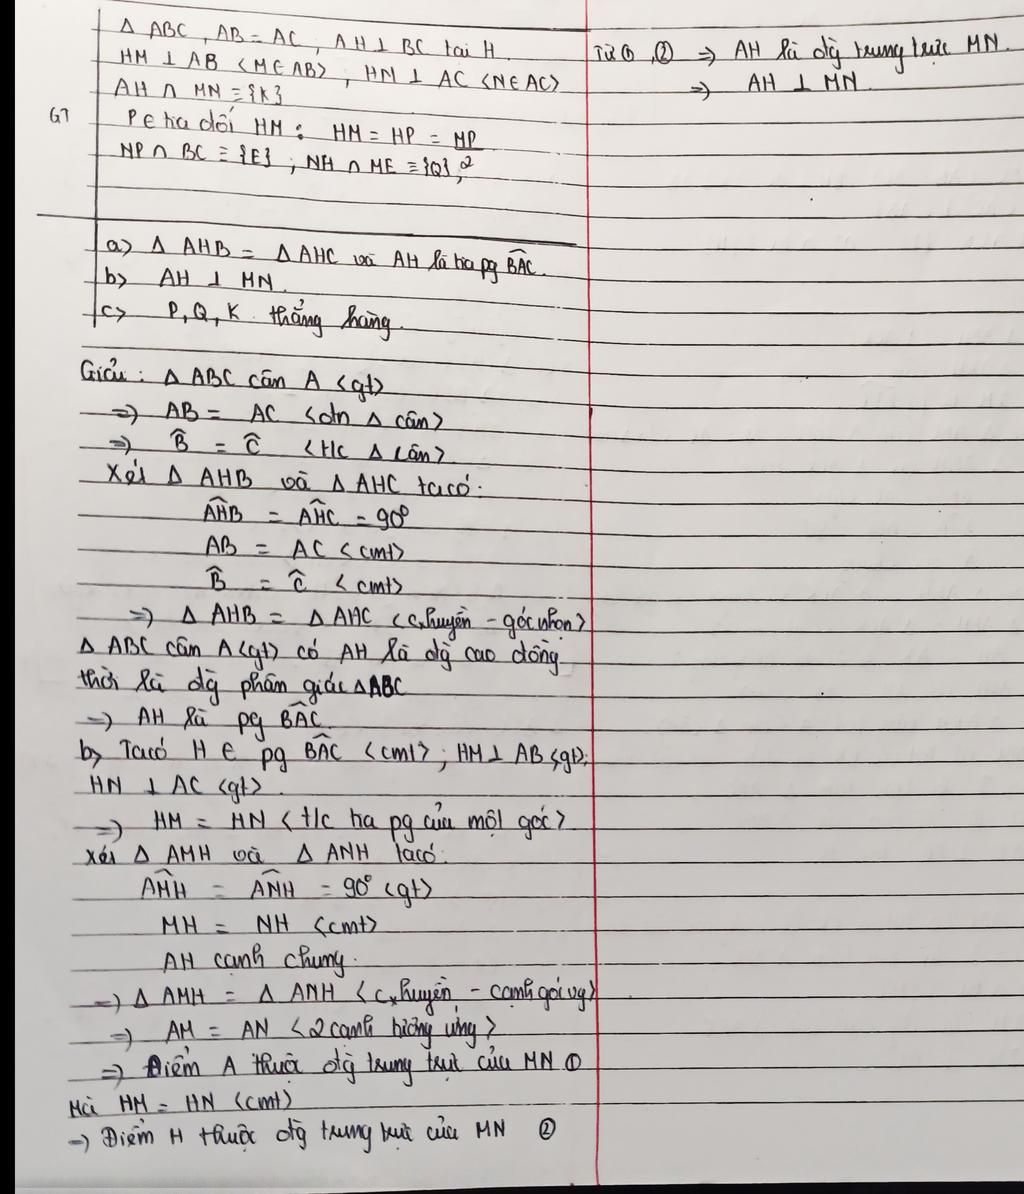 GT
Δ ABC, AB = AC, AH ⊥ BC tại H.
HM ⊥ AB <M ∈ AB>, HN ⊥ AC <N ∈ AC>
AH ∩ MN = {K}
P ∈ tia đối HM : HM = HP = MP/2
NP ∩ BC = {E} ; NH ∩ ME = {Q};
a> Δ AHB = Δ AHC và AH là tia pg BAC.
b> AH ⊥ MN.
c> P, Q, K thẳng hàng.
Giải : Δ ABC cân A <gt>
=> AB = AC <đn Δ cân>
=> B̂ = Ĉ <t/c Δ cân>.
Xét Δ AHB và Δ AHC ta có:
AHB = AHC = 90°
AB = AC <cmt>
B̂ = Ĉ <cmt>
=> Δ AHB = Δ AHC <c.huyền - góc nhọn>
Δ ABC cân A <gt> có AH là đg cao đồng
thời là đg phân giác Δ ABC
=> AH là pg BAC.
b> Ta có H ∈ pg BAC <cmt>; HM ⊥ AB <gt>;
HN ⊥ AC <gt>.
=> HM = HN <t/c tia pg của một góc>.
xét Δ AMH và Δ ANH ta có:
AMH = ANH = 90° <gt>
MH = NH <cmt>
AH cạnh chung.
=> Δ AMH = Δ ANH <c.huyền - cạnh góc vg>
=> AM = AN <2 cạnh tương ứng>
=> Điểm A thuộc đg trung trực của MN ①
Mà HM = HN <cmt>
=> Điểm H thuộc đg trung trực của MN ②
Từ ①, ② => AH là đg trung trực MN.
=> AH ⊥ MN.